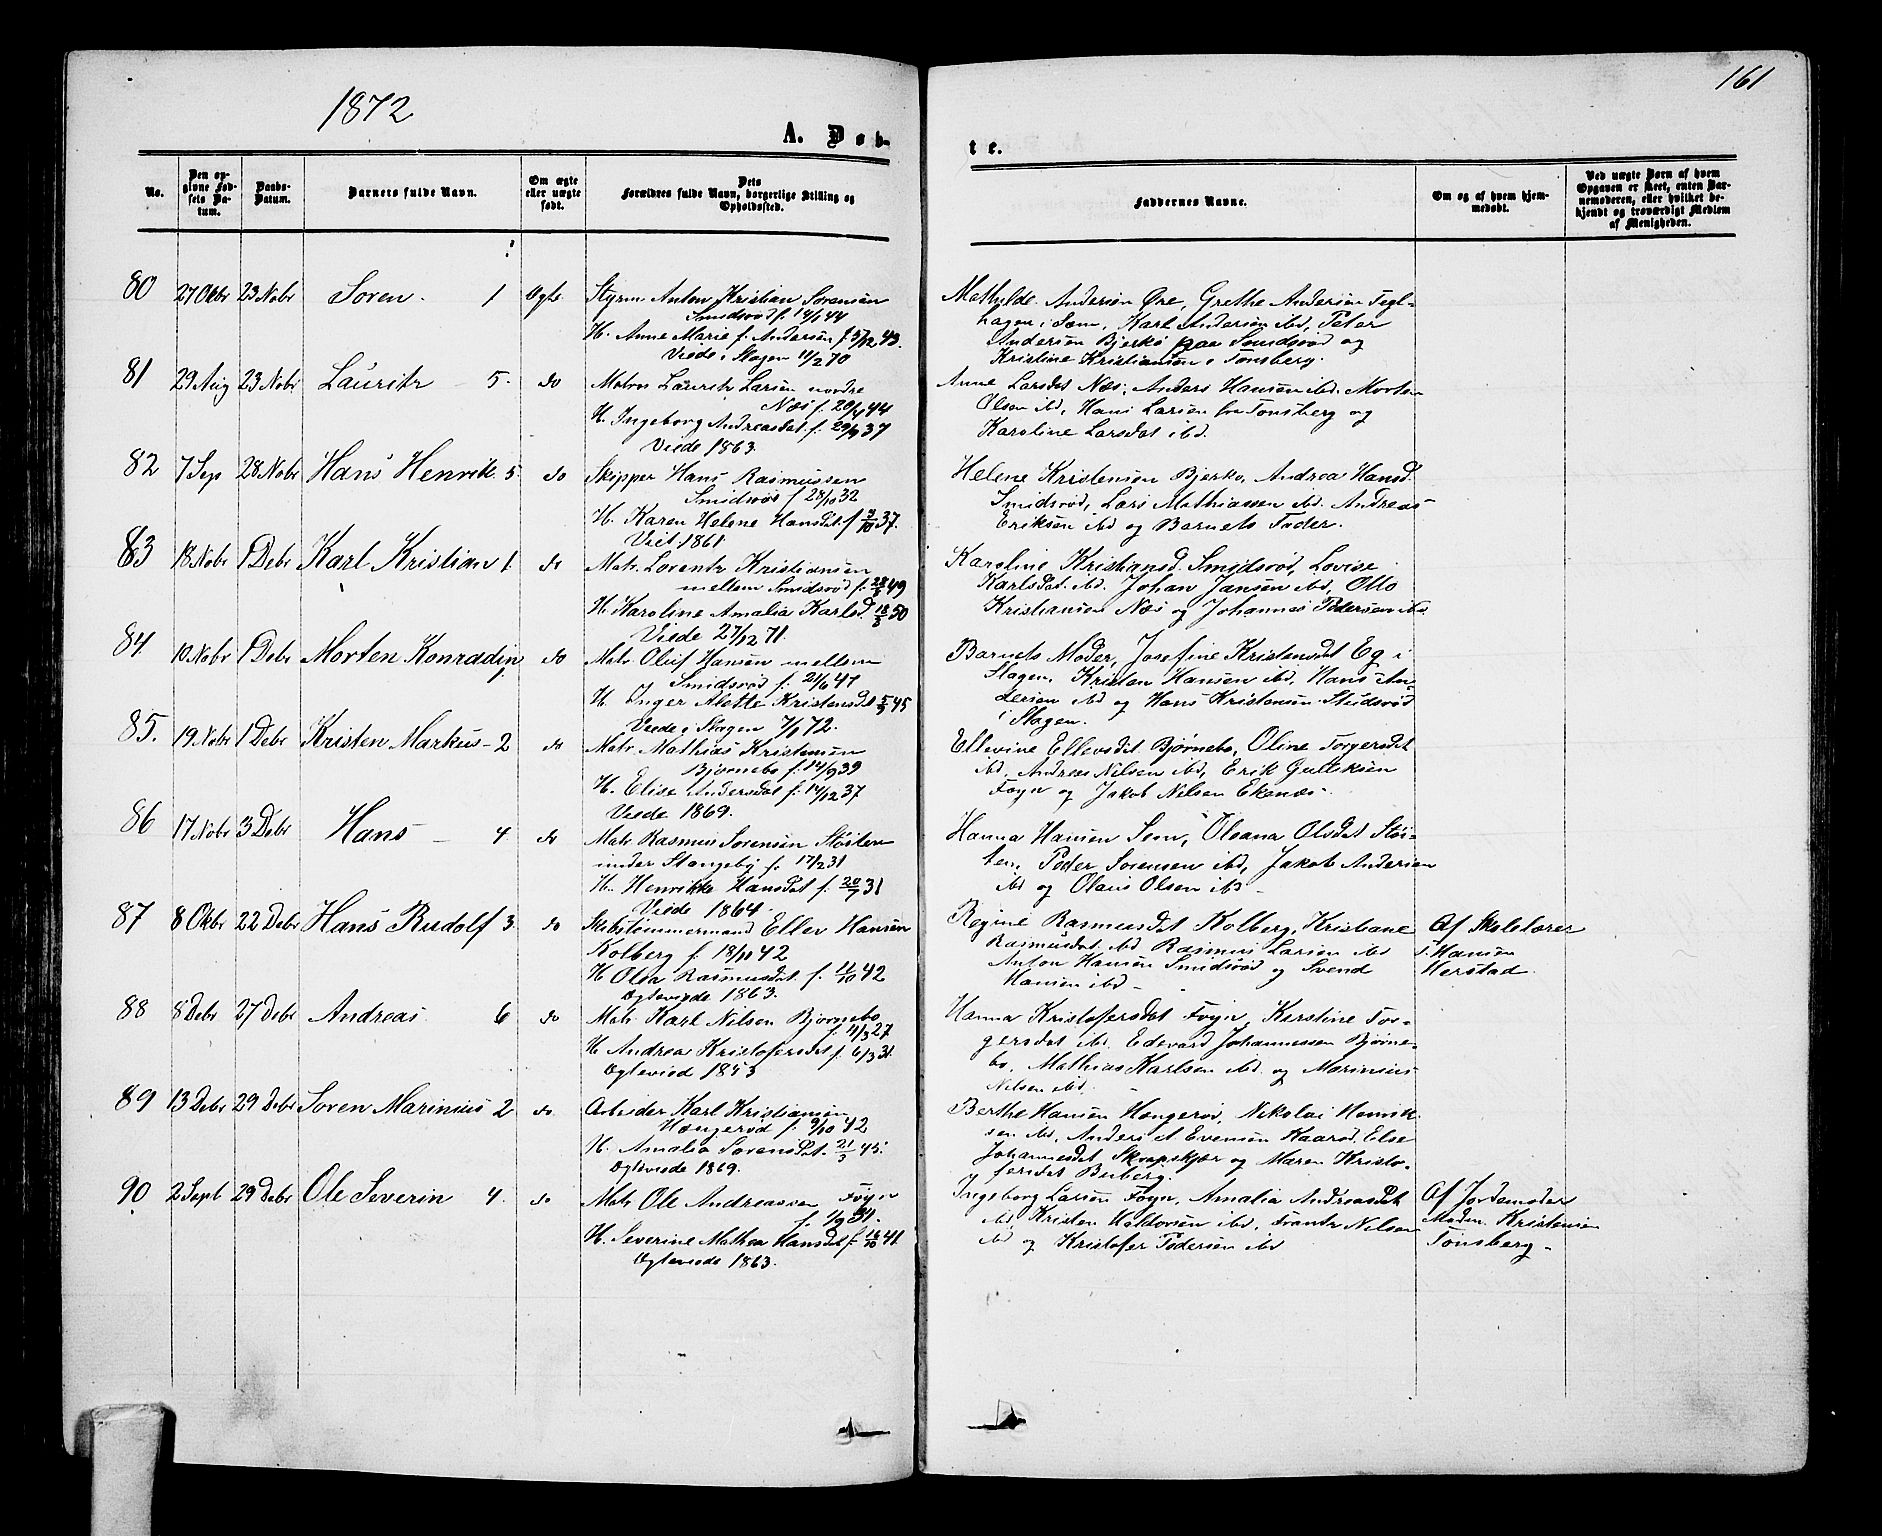 1872
161
A. Døb-
te.
No.
Den op-
givne Fød-
sels Da-
tum.
Daabs-
Datum.
Barnets fulde Navn.
Om ægte
eller uægte
født.
Dets
Forældres fulde Navn, borgerlige Stilling og
Opholdssted.
Faddernes Navne.
Om og af hvem hjem-
medøbt.
Ved uægte Børn af hvem
Opgaven er skeet, enten Bar-
nemoderen, eller hvilket be-
kjendt og troværdigt Medlem
af Menigheden.
80 27 Oktbr 23 Nobr Søren. 1 Ægte
Styrm Anton Kristian Sørensen
Smidsrød f. 14/1 44
H. Anne Marie f. Andersen f. 5/12 43.
Viede i Slagen 11/2 70
Mathilde Andersen Øre, Grethe Andersen Tegl-
hagen i Sem, Karl Andersen ibd, Peter
Andersen Bjerkø paa Smidsrød og
Kristine Kristiansen i Tønsberg.
81 29 Aug 23 Nobr Lauritz - 5. do
Matros Lauritz Larsen nordre
Næs f. 20/4 44
H. Ingeborg Andreasdat. f. 29/9 37
Viede 1863.
Anne Larsdat Næs, Anders Hansen ibd. Morten
Olsen ibd, Hans Larsen fra Tønsberg og
Karoline Larsdat ibd.
82 7 Sep 28 Nobr Hans Henrik. 5. do
Skipper Hans Rasmussen
Smidsrød f. 28/10 32
H. Karen Helene Hansdat f. 7/10 37.
Viet. 1861.
Helene Kristensen Bjerkø, Andrea Hansd.
Smidsrød, Lars Mathiassen ibd. Andreas
Eriksen ibd og Barnets Fader.
83 18 Nobr 1 Debr Karl Kristian 1. do
Matr. Lorentz Kristiansen
mellem Smidsrød f. 28/5 49
H. Karoline Amalia Karlsd. 18/5 50
Viede 27/12 71.
Karoline Kristiansd. Smidsrød, Lovise
Karlsdat. ibd. Johan Jansen ibd, Otto
Kristiansen Næs og Johannes Pedersen ibd
84. 10 Nobr 1 Debr Morten Konradin 1. do
Matr. Oluf Hansen mellem
Smidsrød f. 21/6 47
H. Inger Alette Kristensdt 5/3 45
Viede i Slagen 7/1 72.
Barnets Moder, Josefine Kristensdt Eg i
Slagen, Kristen Hansen ibd, Hans An-
dersen ibd og Hans Kristensen Smidsrød
i Slagen.
85. 19 Nobr 1 Debr Kristen Markus - 2 do
Matr. Mathias Kristensen
Bjørnebo f. 14/9 39
H. Elise Andersdat f. 14/12 37
Viede 1869.
Ellevine Ellevsdt Bjørnebo, Oline Torgersdt
ibd, Andreas Nilsen ibd, Erik Gulliksen
Foyn og Jakob Nilsen Ekenæs.
86 17 Nobr 3 Debr Hans - 4. do
Matr. Rasmus Sørensen Støiten
under Stangeby f. 17/2 31
H. Henrikke Hansdat f. 20/7 31
Viede 1864.
Hanna Hansen Sem, Olsana Olsdat Støi-
ten, Peder Sørensen ibd, Jakob Andersen
ibd og Olaus Olsen ibd -
87 8 Oktbr 22 Debr Hans Rudolf 3. do
Skibstømmermand Ellev Hansen
Kolberg f. 18/11 42
H. Olea Rasmusdat f. 11/10 42
Ægteviede 1863.
Regine Rasmusdat Kolberg, Kristiane
Rasmusdat ibd Rasmus Larsen ibd
Anton Hansen Smidsrød og Svend
Hansen ibd -
Af Skolelærer
Hansen
Herstad
88 8 Debr 27 Debr Andreas. 6 do
Matr. Karl Nilsen Bjørnebo
f. 11/3 27
H. Andrea Kristofersdat f. 6/3 31.
Ægteviede 1853
Hanna Kristofersdat Foyn, Kirstine Tor-
gersdat ibd. Edevard Johannessen Bjørne-
bo, Mathias Karlsen ibd. og Marinius
Nilsen ibd.
89 13 Debr 29 Debr Søren Marinius 2 do.
Arbeider Karl Kristiansen
Hængerød f. 9/10 42
H. Amalia Sørensdat. 21/3 45.
Ægteviede 1869.
Berthe Hansen Hængerød, Nikolai Henrik-
sen ibd, Anders A Evensen Kaarød, Else
Johannesdat Skrapskjær og Maren Kristo-
fersdat Buberg.
90 2 Septb 29 Debr Ole Severin 4. do
Matr. Ole Andreassen Foyn
f. 1/9 31.
H. Severine Mathea Hansdat f. 18/10 41
Ægteviede 1863.
Ingeborg Larsen Foyn, Amalia Andreasdat
ibd, Kristen Haldorsen ibd. Frantz Nilsen
ibd og Kristofer Pedersen ibd
Af Jordemoder
Madm. Kristensen
Tønsberg -